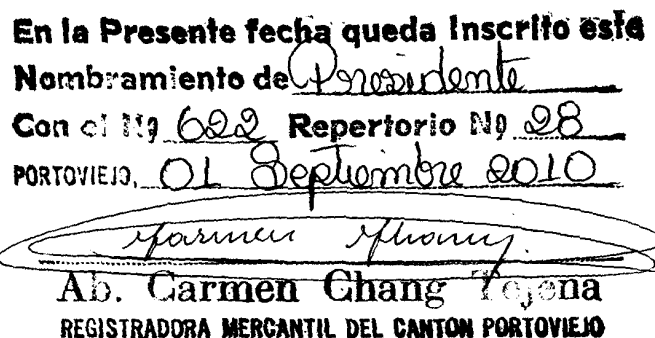 En la Presente fecha queda Inscrito este
Nombramiento de Presidente
Con el Nº 622 Repertorio Nº 28
PORTOVIEJO, 01 Septiembre 2010
Carmen Chang
Ab. Carmen Chang Tejena
REGISTRADORA MERCANTIL DEL CANTON PORTOVIEJO